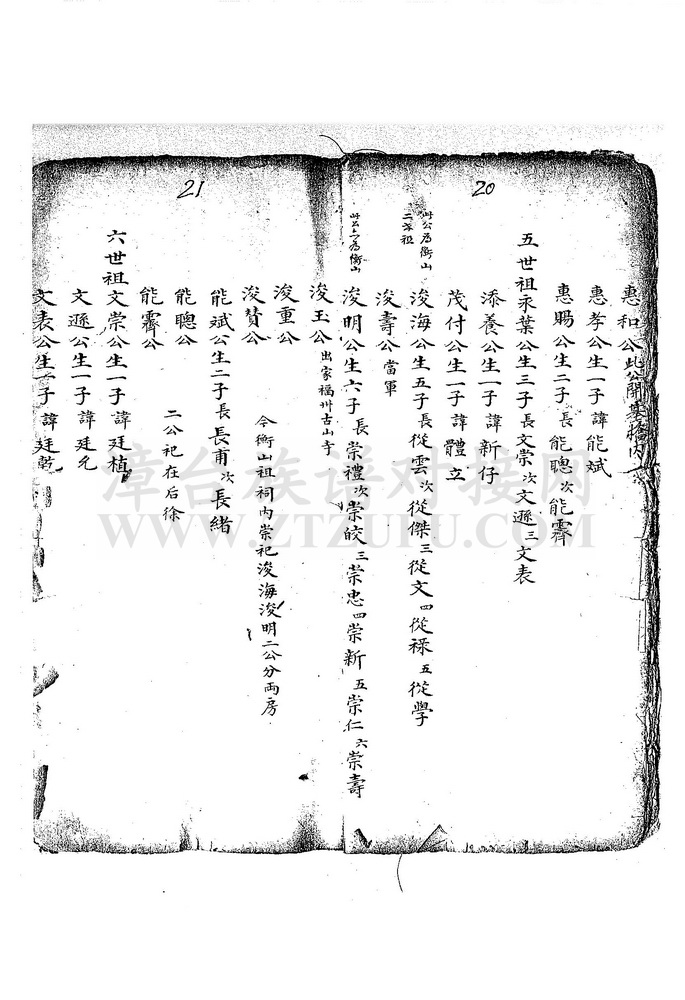 20
惠和公此公開墓堷内
惠孝公生一子諱能斌
惠賜公生二子長能聰次能霽
五世祖永葉公生三子長文崇次文遜三文表
添養公生一子諱新仔
茂付公生一子諱體立
此公為衝山二房祖
浚海公生五子長從雲次從傑三從文四從祿五從學
浚壽公當軍
此公六為衝山
浚明公生六子長崇禮次崇皎三崇忠四崇新五崇仁六崇壽
21
浚玉公出家福州古山寺
浚重公
今衝山祖祠内崇祀浚海浚明二公分両房
浚賛公
能斌公生二子長長甫次長緒
能聰公
二公祀在后徐
能霽公
六世祖文崇公生一子諱廷植
文遜公生一子諱廷允
文表公生一子諱廷乾
漳台族谱对接网
WWW.ZTZUPU.COM